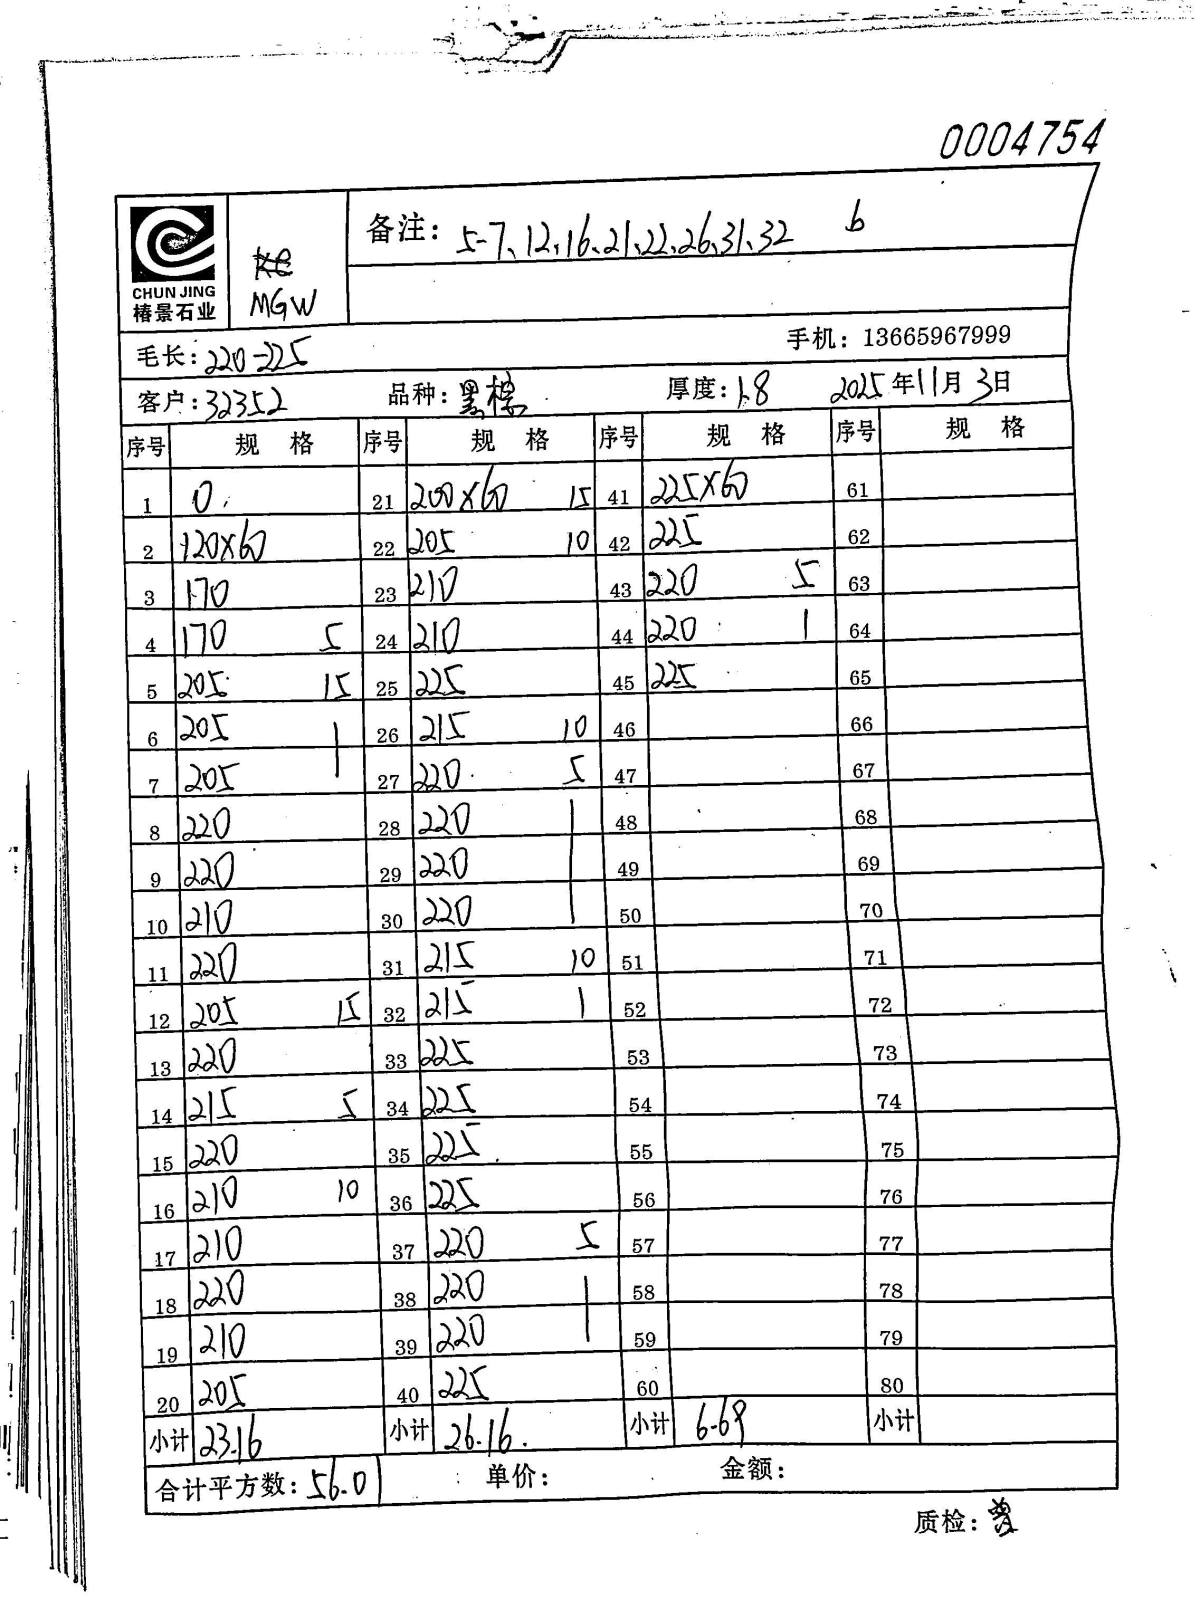 0004754
CHUN JING
椿景石业
MGW
备注：5-7、12、16、21、22、26、31、32 b
毛长：220-225 手机：13665967999
客户：32352 品种：黑棕 厚度：1.8 2025年11月3日
序号 规 格 序号 规 格 序号 规 格 序号 规 格
1 0. 21 200×60 15 41 225×60 61
2 120×60 22 205 10 42 225 62
3 170 23 210 43 220 5 63
4 170 5 24 210 44 220 1 64
5 205 15 25 225 45 225 65
6 205 | 26 215 10 46 66
7 205 | 27 220 5 47 67
8 220 28 220 | 48 68
9 220 29 220 | 49 69
10 210 30 220 | 50 70
11 220 31 215 10 51 71
12 205 15 32 215 | 52 72
13 220 33 225 53 73
14 215 5 34 225 54 74
15 220 35 225 55 75
16 210 10 36 225 56 76
17 210 37 220 5 57 77
18 220 38 220 | 58 78
19 210 39 220 | 59 79
20 205 40 225 60 80
小计 23.16 小计 26.16. 小计 6.69 小计
合计平方数：56.01 单价： 金额：
质检：